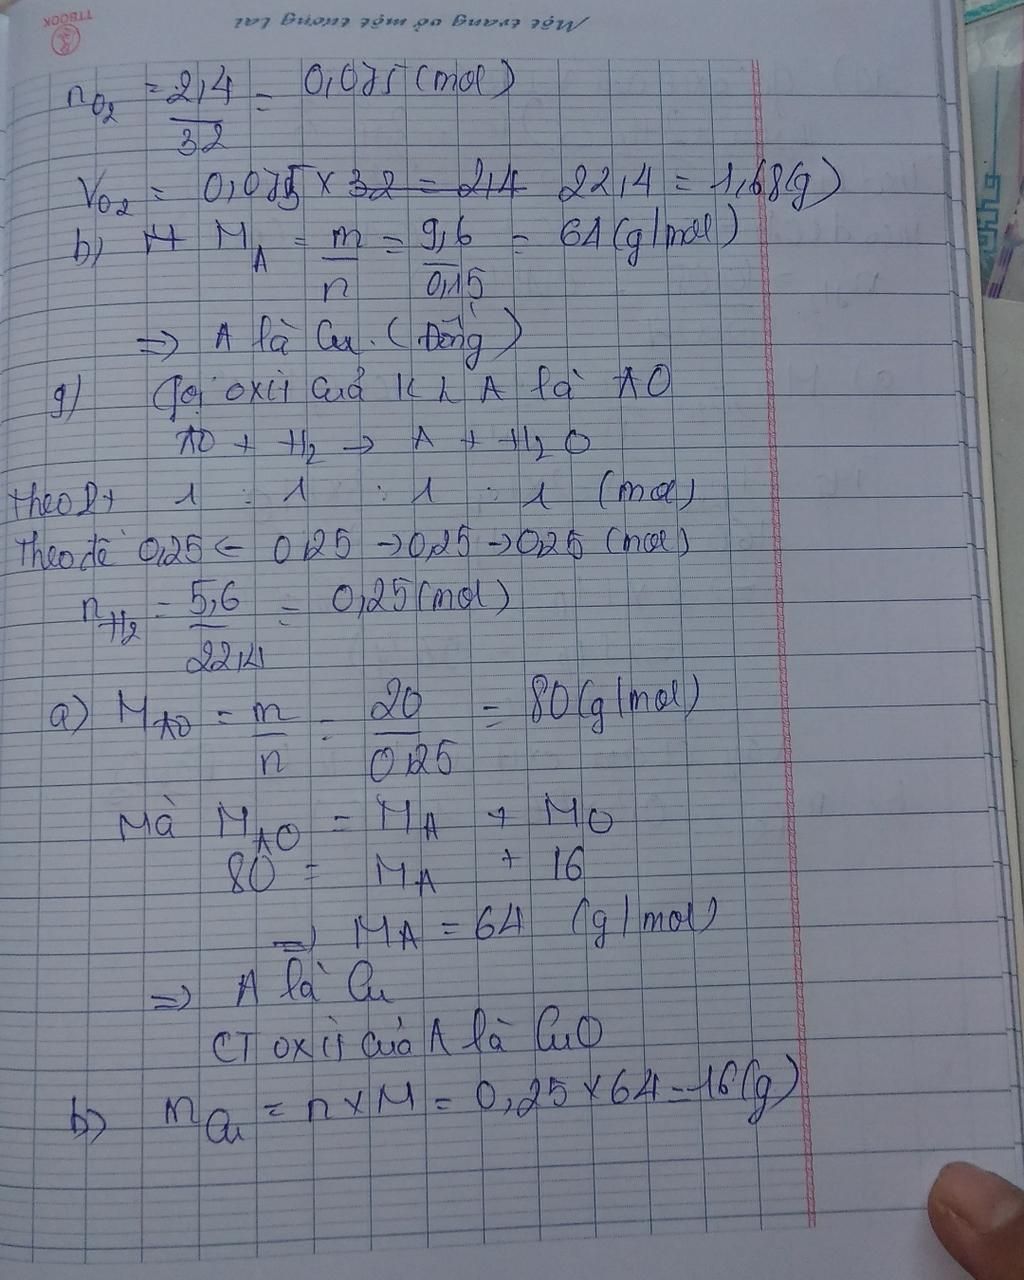 Một trang vở một tương lai
TTBOOK
n O2 = 2,4/32 = 0,075 (mol)
V O2 = 0,075 × 32 = 2,4 22,4 = 1,68(g)
b) M M A = m/n = 9,6/0,15 = 64 (g/mol)
=> A là Cu. (Đồng)
9) Gọi oxit của KL A là AO
AO + H2 → A + H2O
Theo Pt 1 : 1 : 1 : 1 (mol)
Theo đề 0,25 ← 0,25 → 0,25 → 0,25 (mol)
n H2 = 5,6/22,4 = 0,25 (mol)
a) M AO = m/n = 20/0,25 = 80 (g/mol)
Mà M AO = M A + M O
80 = M A + 16
=> M A = 64 (g/mol)
=> A là Cu
CT oxit của A là CuO
b) m Cu = n × M = 0,25 × 64 = 16 (g)